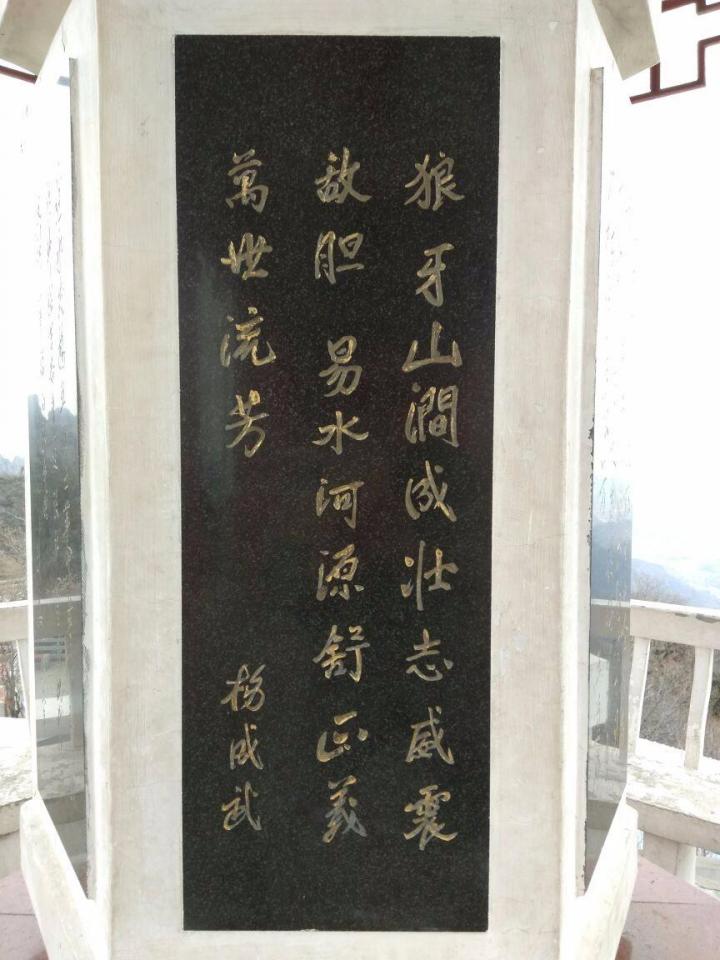 狼牙山澗成壮志威震
敌胆 易水河源舒正義
萬世流芳
杨成武